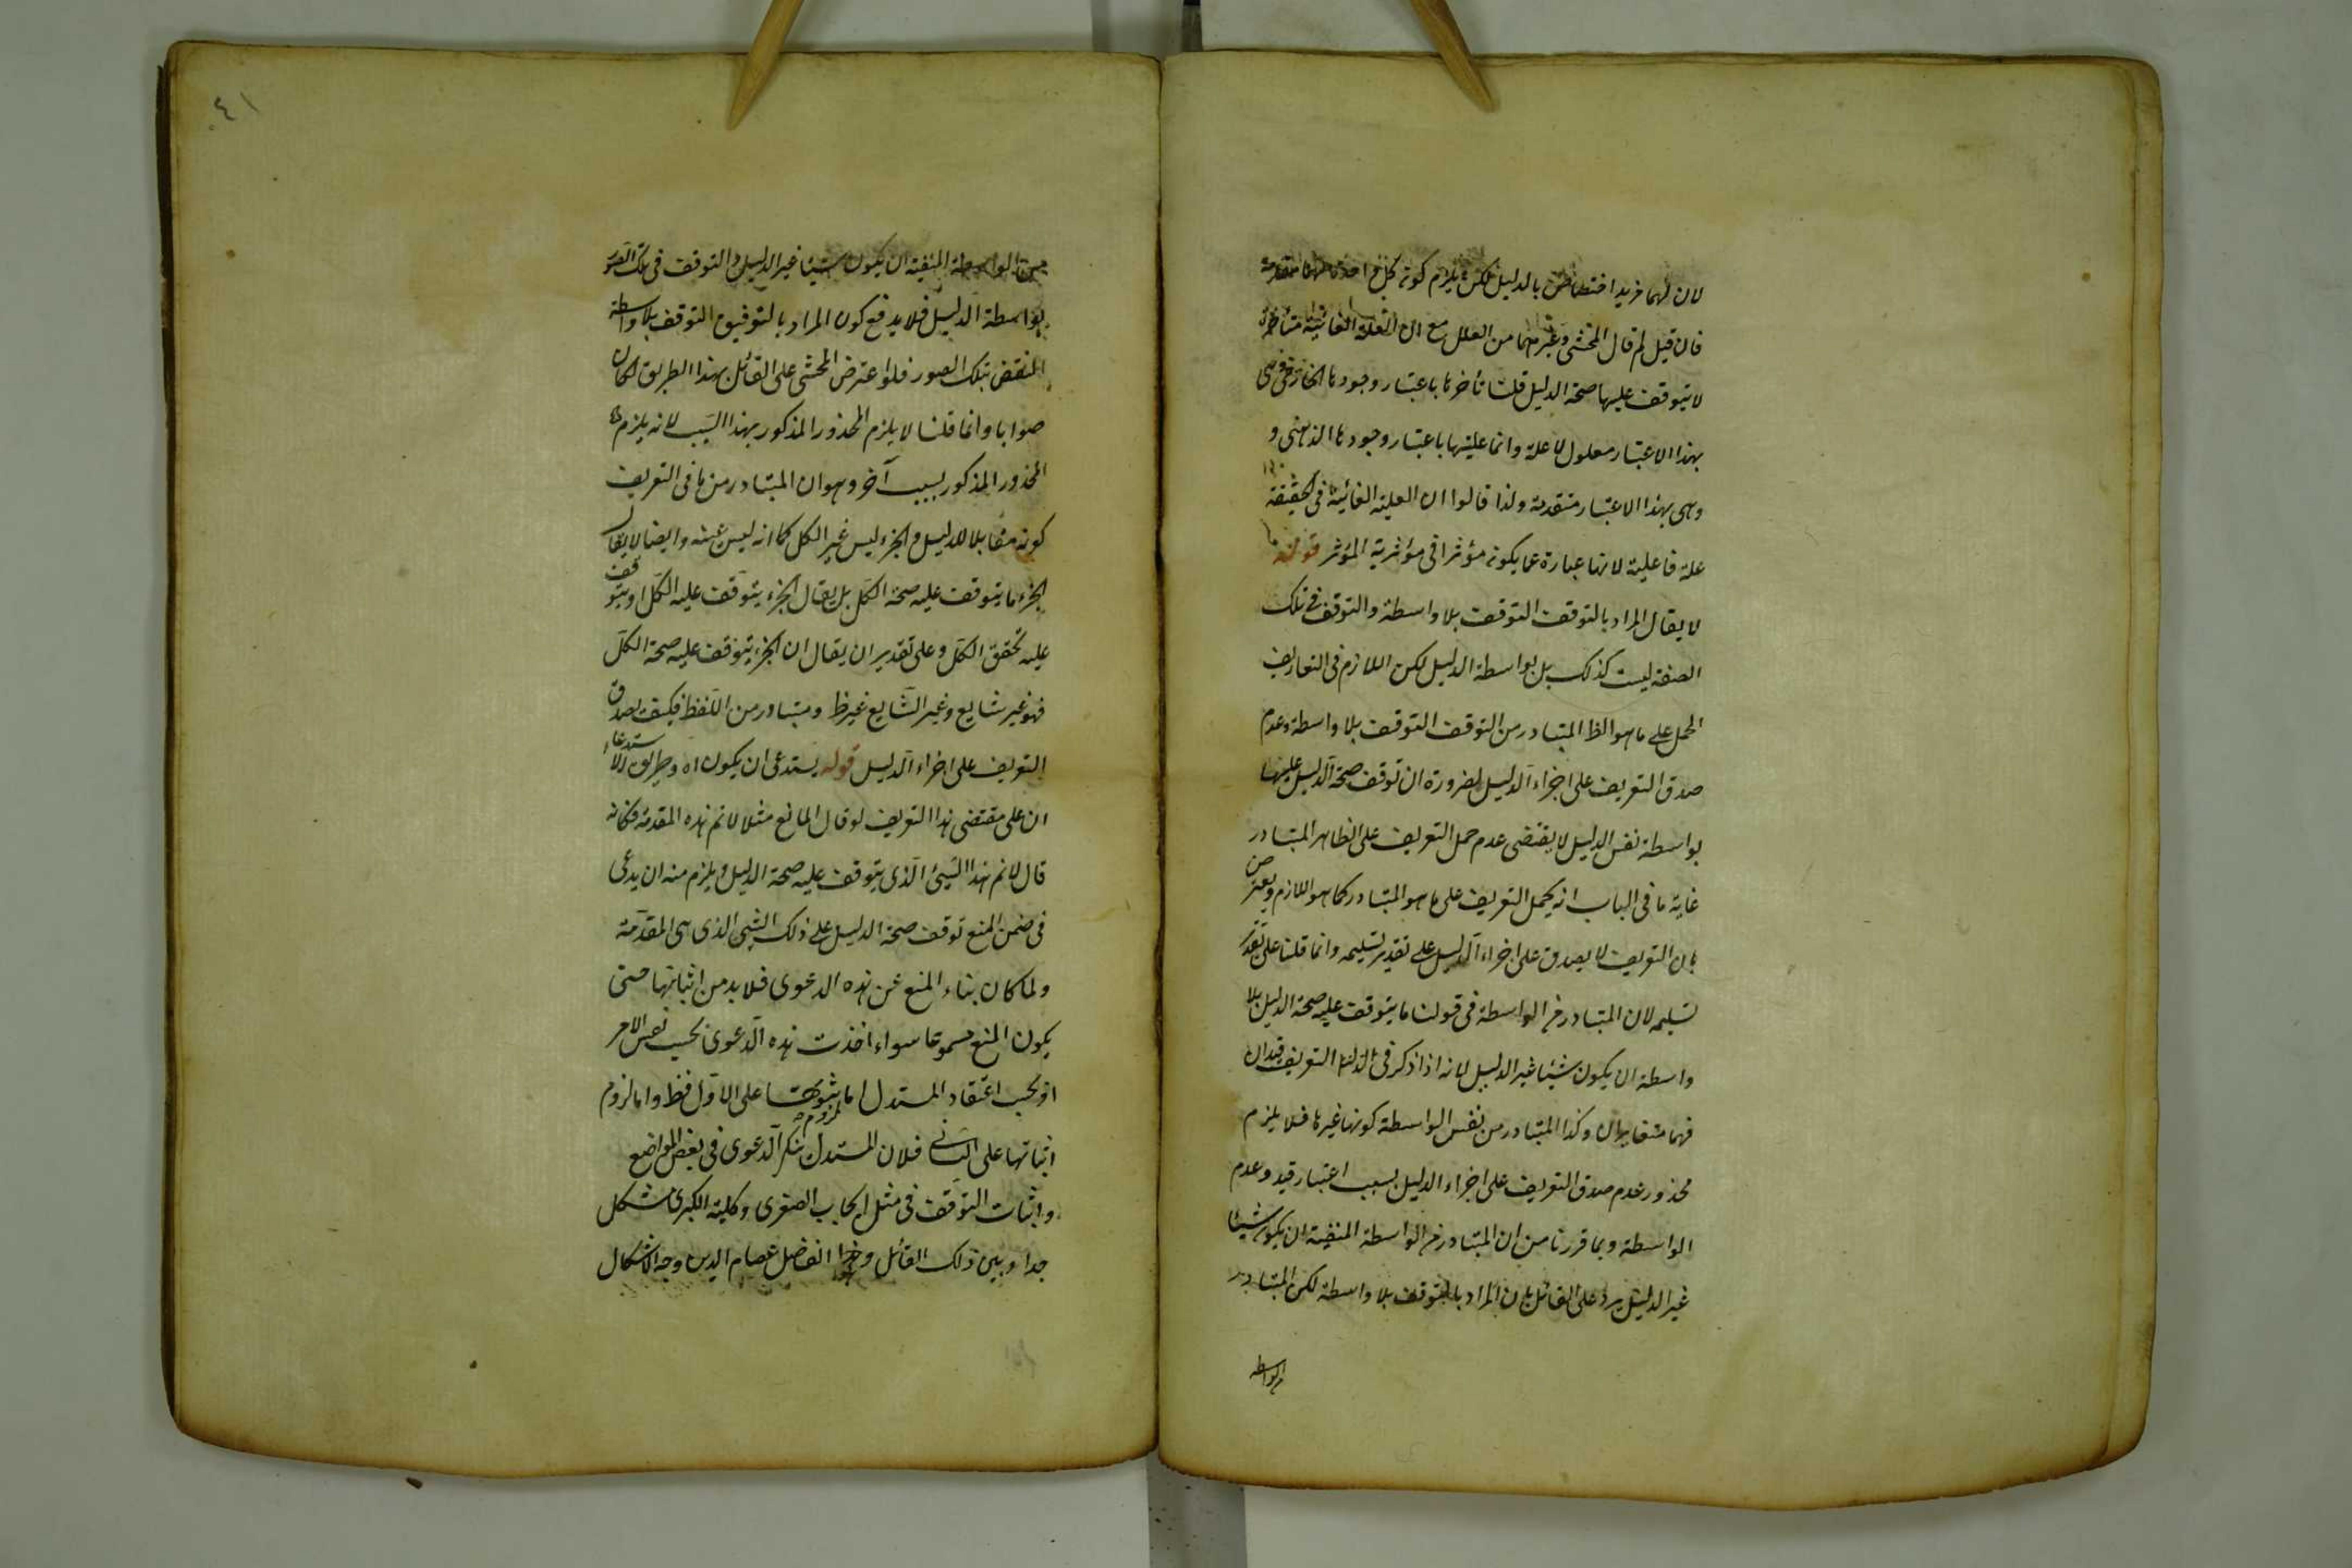 لان لهما مزيد اختصاص بالدليل لكن يلزم كونه كل واحد منهما مقدمة
فان قيل لم قال المحشى وغيرهما من العلل مع ان العلة الغائية متأخرة
لا يتوقف عليها صحة الدليل قلنا تأخرها باعتبار وجودها الخارجى وهى
بهذا الاعتبار معلول لا علة وانما عليتها باعتبار وجودها الذهنى و
وهى بهذا الاعتبار متقدمة ولذا قالوا ان العلة الغائية فى الحقيقة
علة فاعلية لانها عبارة عما يكون مؤثرا فى مؤثرية المؤثر قوله
لا يقال المراد بالتوقف التوقف بلا واسطة والتوقف فى تلك
الصفة ليست كذلك بل بواسطة الدليل لكن اللازم فى التعاريف
الحمل على ما هو الظ المتبادر من التوقف التوقف بلا واسطة وعدم
صدق التعريف على اجزاء الدليل لضرورة ان توقف صحة الدليل عليها
بواسطة نفس الدليل لا يقتضى عدم حمل التعريف على الظاهر المتبادر
غاية ما فى الباب انه يحمل التعريف على ما هو المتبادر كما هو اللازم ويعترض
بان التعريف لا يصدق على اجزاء الدليل على تقدير تسليمه وانما قلنا على تقدير
تسليمه لان المتبادر من الواسطة فى قولنا ما يتوقف عليه صحة الدليل بلا
واسطة ان يكون شيئا غير الدليل لانه اذا ذكر فى التعريف قيدان
فهما متغايران وكذا المتبادر من نفس الواسطة كونها غيرها فلا يلزم
محذور عدم صدق التعريف على اجزاء الدليل بسبب اعتبار قيد وعدم
الواسطة وبما قررنا من ان المتبادر من الواسطة المنفية ان يكون شيئا
غير الدليل يرد على القائل بان المراد بالتوقف بلا واسطة لكن المتبادر
من الواسطة
٤١
من الواسطة المنفية ان يكون شيئا غير الدليل والتوقف فى تلك الصور
بواسطة الدليل فلا يدفع كون المراد بالتوفيق التوقف بلا واسطة
النقض بتلك الصور فلو اعترض المحشى على القائل بهذا الطريق لكان
صوابا وانما قلنا لا يلزم المحذور المذكور بهذا السبب لانه يلزم
المحذور المذكور بسبب آخر وهو ان المتبادر من ما فى التعريف
كونه مقابلا للدليل والجزء ليس غير الكل كما انه ليس عينه وايضا لا يقال
الجزء ما يتوقف عليه صحة الكل بل يقال الجزء يتوقف عليه الكل او يتوقف
عليه تحقق الكل وعلى تقدير ان يقال ان الجزء يتوقف عليه صحة الكل
فهو غير شايع وغير الشايع غير ظ ومتبادر من اللفظ فكيف يصدق
التعريف على اجزاء الدليل قوله يستدعى ان يكون اه وطريق الاستدعاء
ان على مقتضى هذا التعريف لو قال المانع مثلا لا نم هذه المقدمة فكانه
قال لا نم هذا الشيئ الذى يتوقف عليه صحة الدليل ويلزم منه ان يدعى
فى ضمن المنع توقف صحة الدليل على ذلك الشيئ الذى هى المقدمة
ولما كان بناء المنع عن هذه الدعوى فلا بد من اثباتها حتى
يكون المنع مسموعا سواء اخذت هذه الدعوى بحسب نفس الامر
او بحسب اعتقاد المستدل اما ثبوتها على الاول فظ واما لزوم
اثباتها على الثانى فلان المستدل ينكر الدعوى فى بعض المواضع
واثبات التوقف فى مثل ايجاب الصغرى وكلية الكبرى مشكل
جدا وبين ذلك القائل وهو الفاضل عصام الدين وجه الاشكال